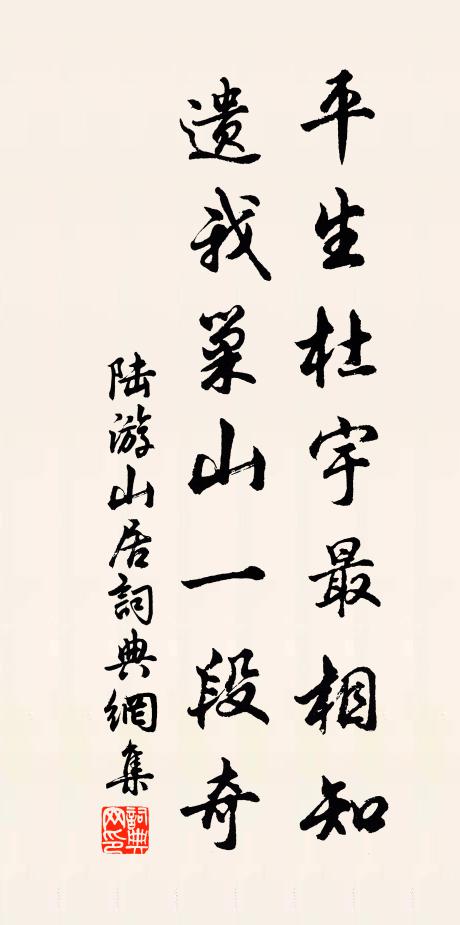 平生杜宇最相知
遗我巢山一段奇
陆游山居詞典網集
詞典网印